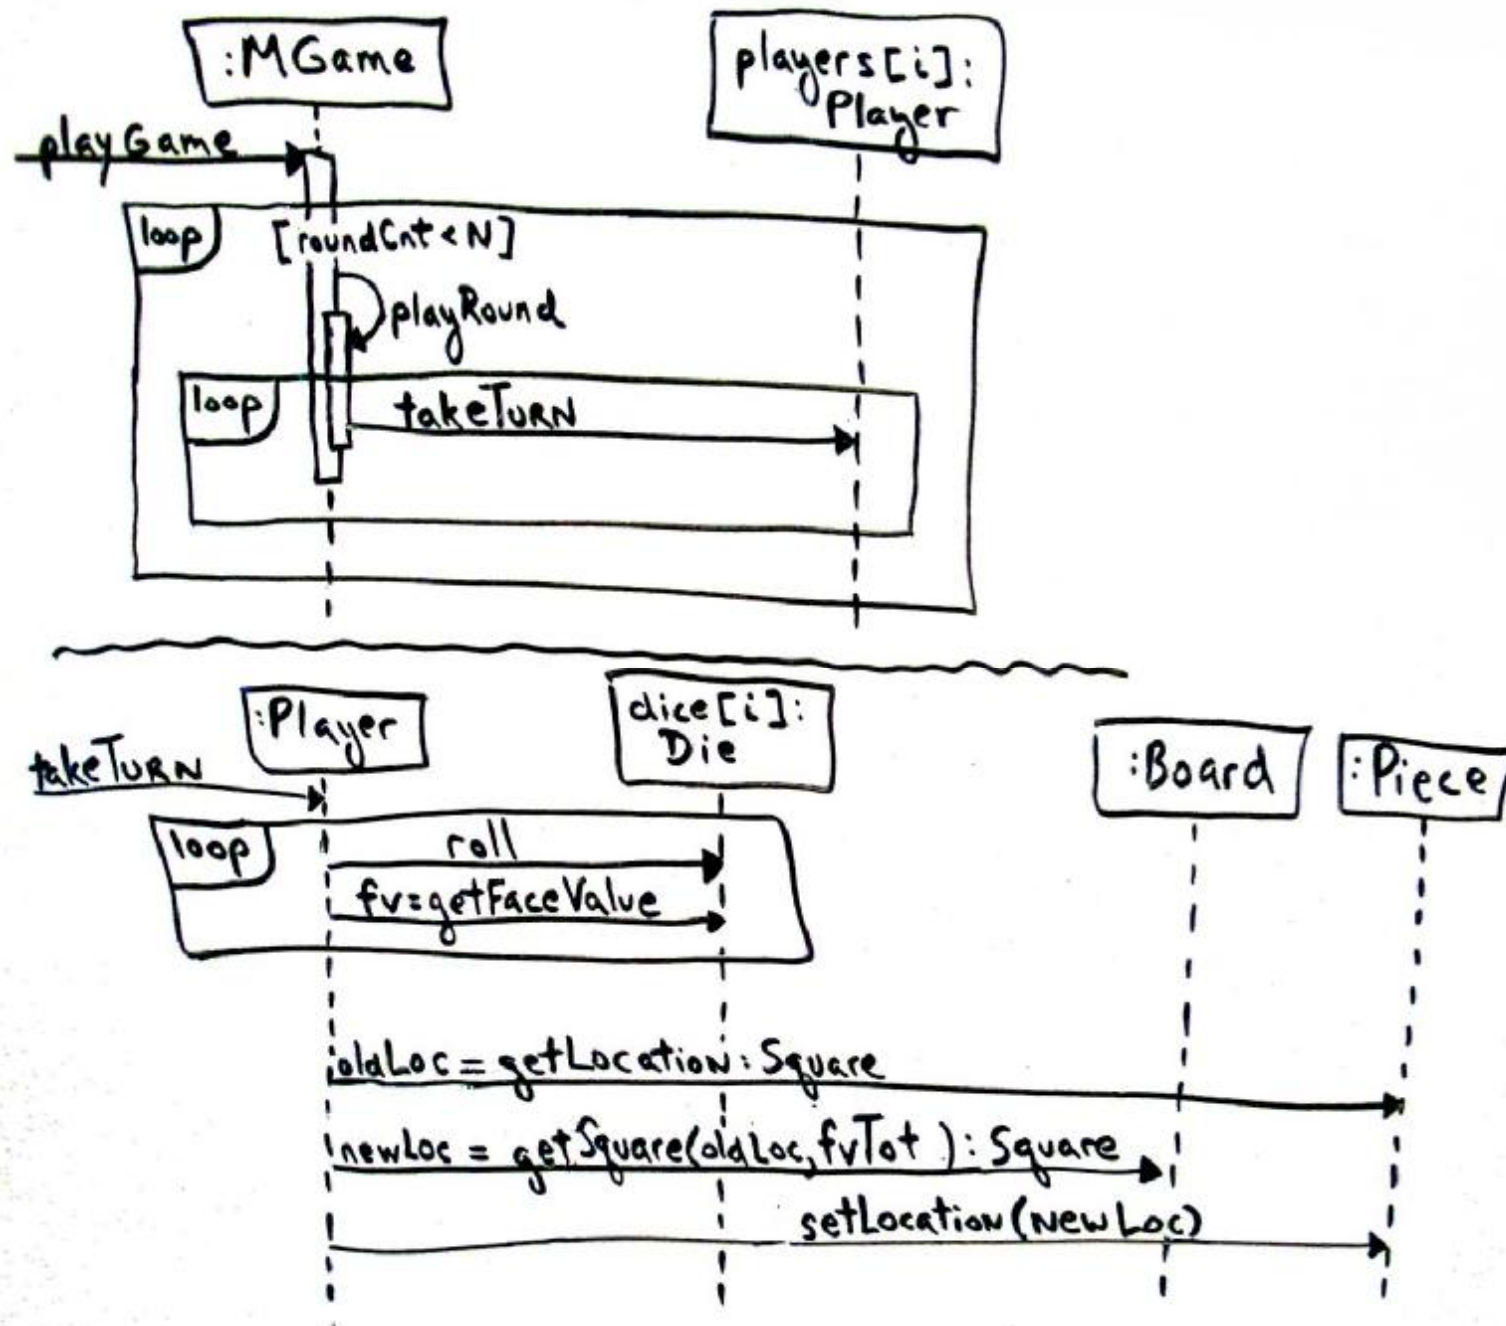 :MGame
players[i]:
Player
playGame
loop
[roundCnt < N]
playRound
loop
takeTURN
:Player
dice[i]:
Die
:Board
:Piece
takeTURN
loop
roll
fv=getFaceValue
oldLoc = getLocation: Square
newLoc = getSquare(oldLoc, fvTot ): Square
setLocation(newLoc)